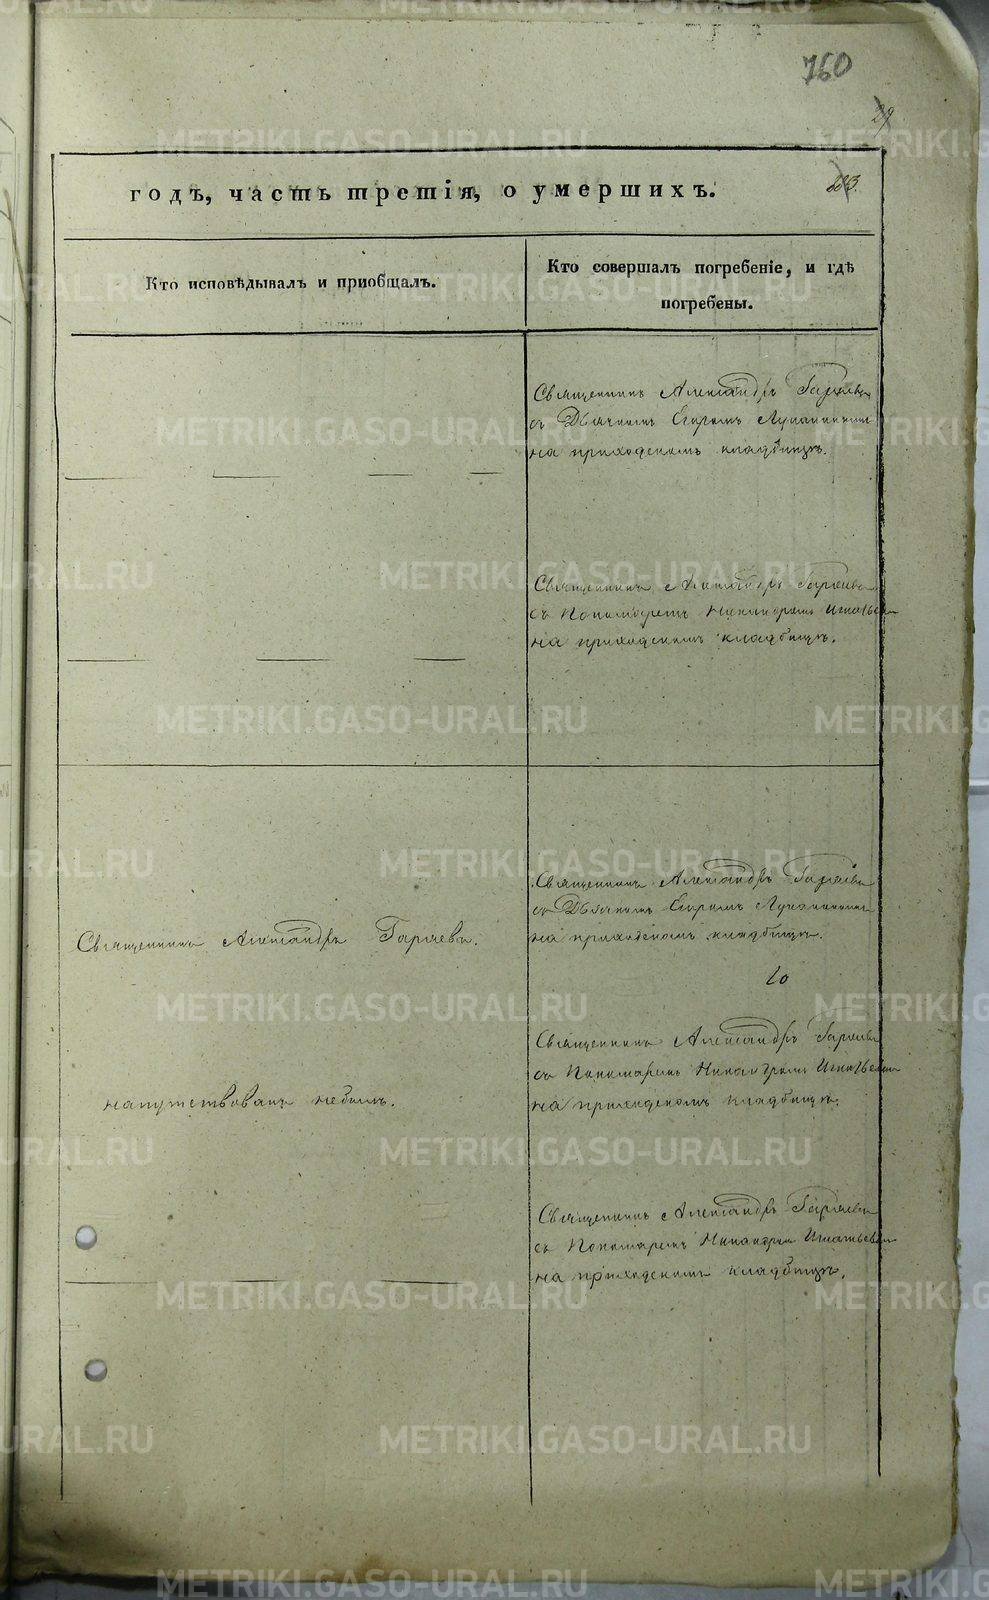 760
29
годъ, часть третія, о умершихъ.
Кто исповѣдывалъ и пріобщалъ.
Кто совершалъ погребеніе, и гдѣ
погребены.
Священникъ Александръ Гаряевъ
съ Дьячкомъ Егоромъ Луканинымъ
на приходскомъ кладбищѣ.
Священникъ Александръ Гаряевъ
съ Пономаремъ Никандромъ Игнатьевымъ
на приходскомъ кладбищѣ.
Священникъ Александръ Гаряевъ.
Священникъ Александръ Гаряевъ
съ Дьячкомъ Егоромъ Луканинымъ
на приходскомъ кладбищѣ.
напутствованъ небылъ.
Священникъ Александръ Гаряевъ
съ Пономаремъ Никандромъ Игнатьевымъ
на приходскомъ кладбищѣ.
Священникъ Александръ Гаряевъ
съ Пономаремъ Никандромъ Игнатьевымъ
на приходскомъ кладбищѣ.
METRIKI.GASO-URAL.RU